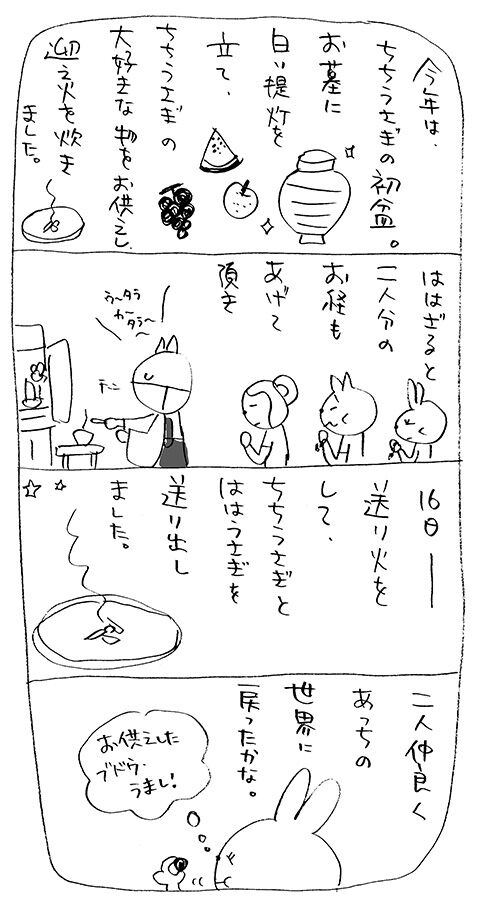 今年は、
ちちうさぎの初盆。
お墓に
白い提灯を
立て、
ちちうさぎの
大好きな物をお供えし、
迎え火を炊き
ました。
ははぎると
二人分の
お経も
あげて
頂き
う〜タラ
わ〜
タラ〜
チーン
16日ー
送り火を
して、
ちちうさぎと
ははうさぎを
送り出し
ました。
二人仲良く
あっちの
世界に
戻ったかな。
お供えした
ブドウ、
うまし!